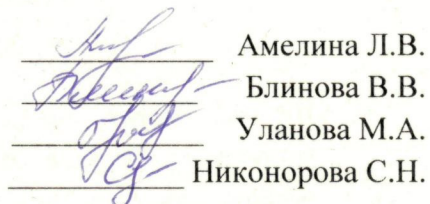 Амелина Л.В.
Блинова В.В.
Уланова М.А.
Никонорова С.Н.